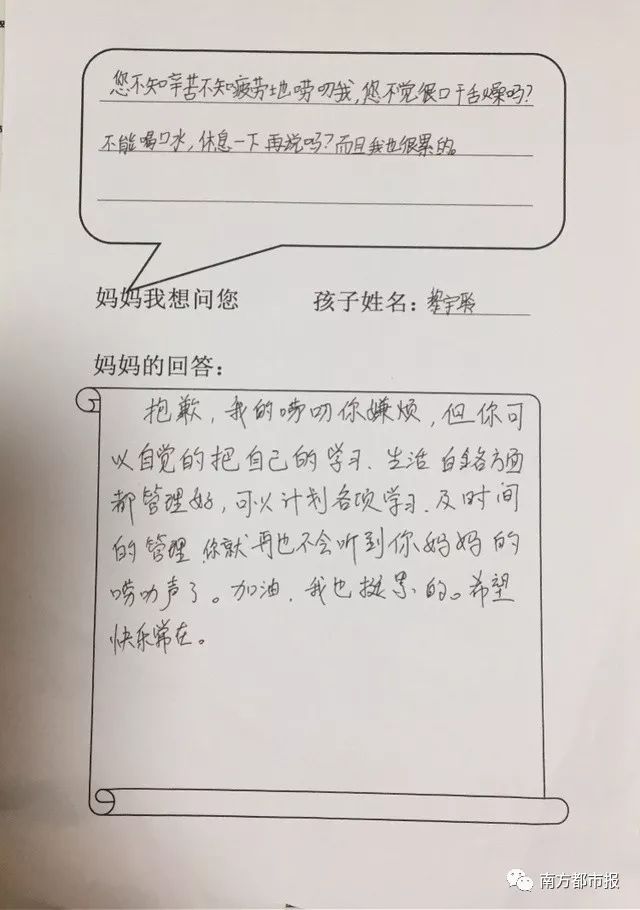 您不知辛苦不知疲劳地唠叨我,您不觉很口干舌燥吗?
不能喝口水,休息一下再说吗?而且我也很累的。
妈妈我想问您 孩子姓名:黎宇聪
妈妈的回答:
抱歉,我的唠叨你嫌烦,但你可
以自觉的把自己的学习、生活 各方面
都管理好,可以计划各项学习、及时间
的管理,你就再也不会听到你妈妈的
唠叨声了。加油、我也挺累的。希望
快乐常在。
南方都市报